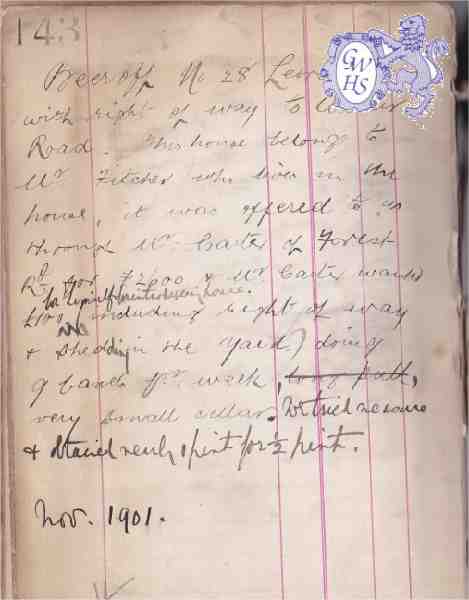 143
Beeroff No 28
with right of way to
Road. This house belongs to
Mr Fitcher who lives in the
house, it was offered to us
through Mr Carter of Forest
Rd for £2600 & Mr Carter wants
for himself
house.
£100 including right of way
& shedding in the yard) doing
9 barrels pr week, long pull,
very small cellar. We tried measure
& obtained nearly 1 pint for ½ pint.
Nov. 1901.
GWHS